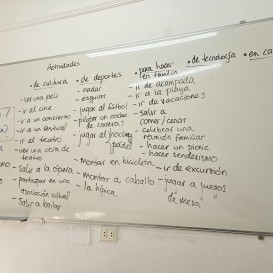 Actividades
• de cultura
- ver una peli
- ir al cine
- ir a un concierto
- ir a un festival
- ir al teatro
- ver una obra de
teatro
- salir a la ópera
- participar en una
asociación cultural
- salir a bailar
• de deportes
- nadar
- esquiar
- jugar al fútbol
- pilotar un coche
de carreras
- jugar al hockey
pádel
- montar en bicicleta
- montar a caballo
- la hípica
• para hacer
en familia
- ir de acampada
- ir a la playa
- ir de vacaciones
- salir a
comer/cenar
- celebrar una
reunión familiar
- hacer un picnic
- hacer senderismo
- ir de excursión
- jugar a juegos
de mesa
• de tecnología
• en ca